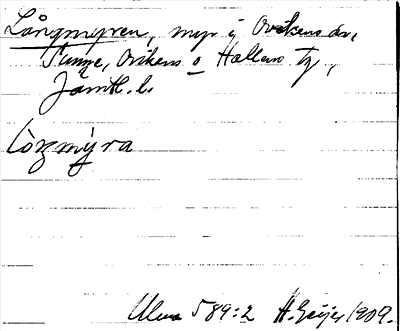 Långmyren, myr i Ovikens sn,
Sunne, Ovikens o Hallens tg,
Jämtl. l.
lòŋmy̆ra
589:2 H. Geijer 1909.